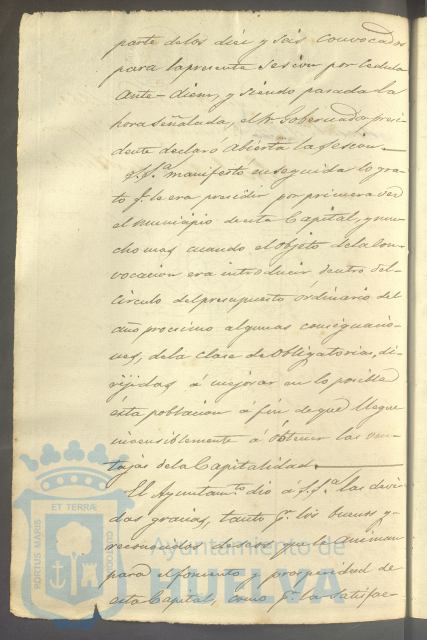 parte de los diez y seis convocados
para la presente sesion por cedula
ante-diem, y siendo pasada la
hora señalada, el Sr. Gobernador presi-
dente declaró abierta la sesion.
S.Sª. manifestó enseguida lo gra-
to q. le era presidir por primera vez
el municipio de esta Capital, y mu-
cho mas cuando el objeto de la con-
vocacion era introducir dentro del
circulo del presupuesto ordinario del
año procsimo algunas consignacio-
nes, de la clase de obligatorias, di-
rijidas á mejorar en lo posible
ésta poblacion á fin de que llegue
insensiblemente á obtener las ven-
tajas de la Capitalidad.
El Ayuntamto. dió á S.Sª. las devi-
das gracias, tanto pr. los buenos y
reconocidos deseos que le animan
para el fomento y prosperidad de
esta Capital, como pr. la satisfac-
PORTUS MARIS
ET TERRÆ
CUSTODIA
Ayuntamiento de
HUELVA